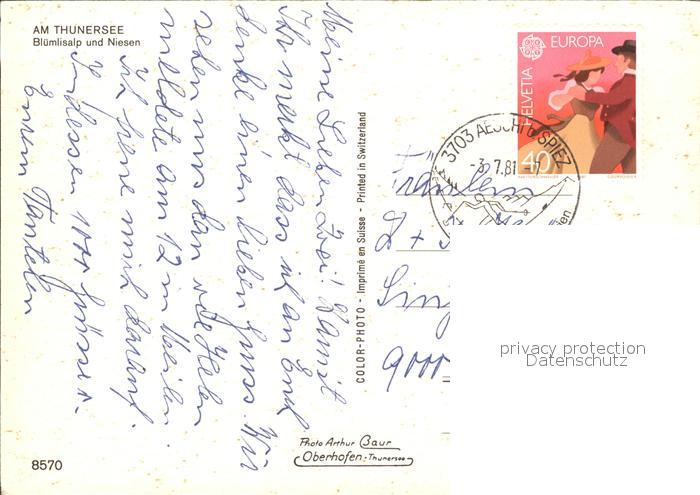 AM THUNERSEE
Blümlisalp und Niesen
Meine Lieben Zwei! Damit
Ihr merkt dass ich an Euch
denke einen lieben Gruss. Wir
sehen uns dann wie Helen
meldete am 12 in Meilen.
Ich freue mich darauf.
Indessen 1000 Grüsse v.
Eurem Tantelen
8570
COLOR-PHOTO - Imprimé en Suisse - Printed in Switzerland
Photo Arthur Baur
Oberhofen-Thunersee
EUROPA
HELVETIA
40
3703 AESCHI b/SPIEZ
-3.7.81
Fräulein
9000
privacy protection
Datenschutz